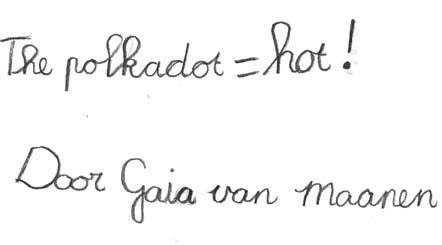 The polkadot = hot!
Door Gaia van Maanen